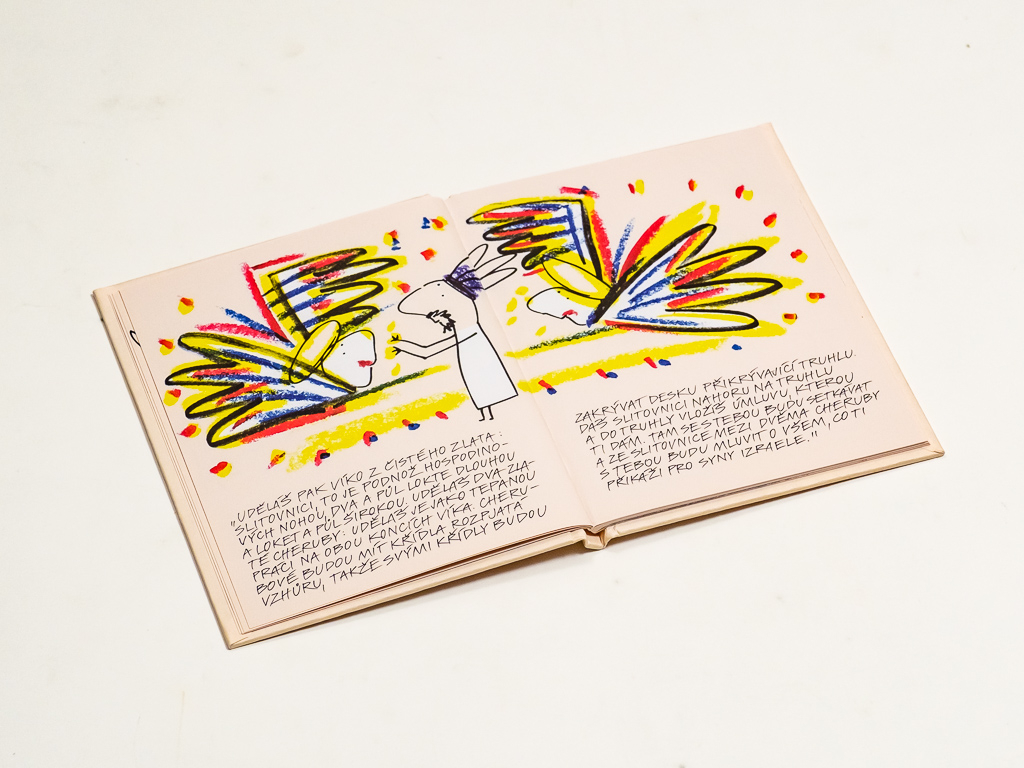 "UDĚLÁŠ PAK VÍKO Z ČISTÉHO ZLATA:
SLITOVNICI, TO JE PODNOŽ HOSPODINO-
VÝCH NOHOU, DVA A PŮL LOKTE DLOUHOU
A LOKET A PŮL ŠIROKOU. UDĚLÁŠ DVA ZLA-
TÉ CHERUBY: UDĚLÁŠ JE JAKO TEPANOU
PRÁCI NA OBOU KONCÍCH VÍKA. CHERU-
BOVÉ BUDOU MÍT KŘÍDLA ROZPJATÁ
VZHŮRU, TAKŽE SVÝMI KŘÍDLY BUDOU
ZAKRÝVAT DESKU PŘIKRÝVAJÍCÍ TRUHLU.
DÁŠ SLITOVNICI NAHORU NA TRUHLU
A DO TRUHLY VLOŽÍŠ ÚMLUVU, KTEROU
TI DÁM. TAM SE S TEBOU BUDU SETKÁVAT
A ZE SLITOVNICE MEZI DVĚMA CHERUBY
S TEBOU BUDU MLUVIT O VŠEM, CO TI
PŘIKÁŽI PRO SYNY IZRAELE."